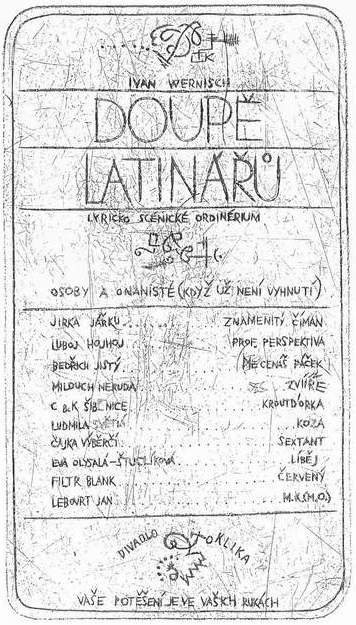 IVAN WERNISCH
DOUPĚ
LATINÁŘŮ
LYRICKO SCÉNICKÉ ORDINÉRIUM
OSOBY A ONANISTÉ (KDYŽ UŽ NENÍ VYHNUTÍ)
JIRKA JARKU.......... ZNAMENITÝ ČIMAN
LUBOJ HOJHOJ PROF. PERSPEKTIVA
BEDŘICH JISTÝ MECENÁŠ PÁČEK
MILOUCH NERUDA ZVÍŘE
C & K ŠIBENICE .......... KROUTĎORKA
LUDMILA SVĚTLÁ .......... KOZA
ČAJKA VÝBĚRČÍ .......... SEXTANT
EVA OLYSALÁ-ŠTUSLÍKOVÁ .......... LIBĚJ
FILTR BLANK .......... ČERVENÝ
LEBOURT JAN .......... M.K.(M.O.)
DIVADLO OKLIKA
VAŠE POTĚŠENÍ JE VE VAŠICH RUKÁCH